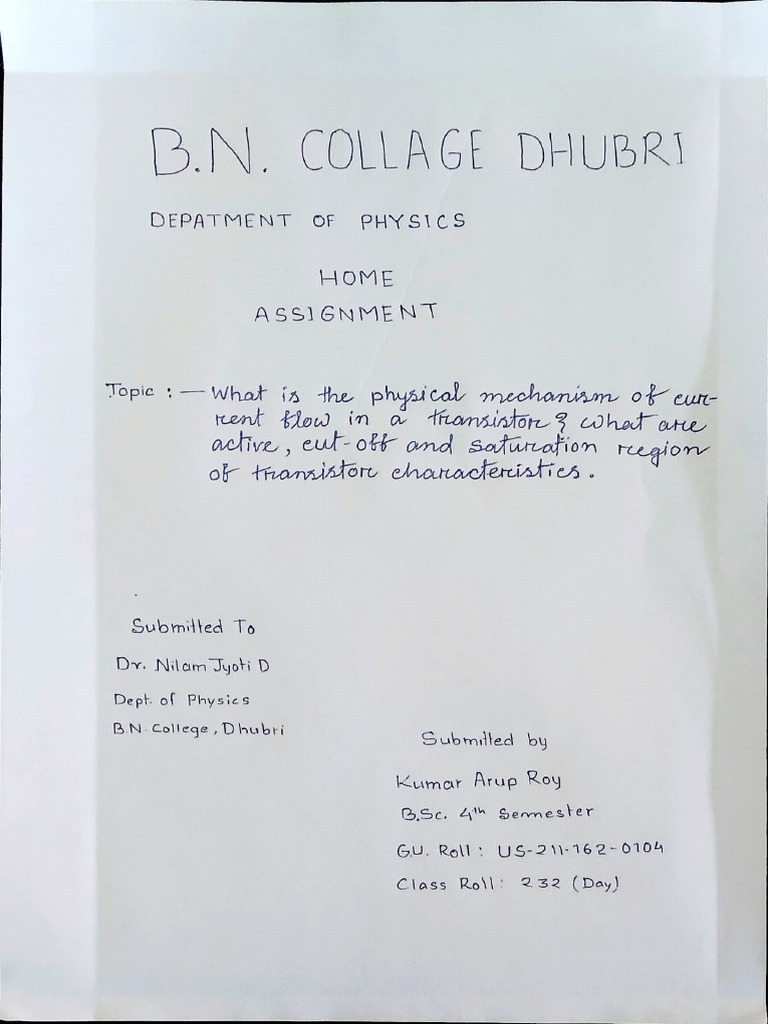 B.N. COLLAGE DHUBRI
DEPATMENT OF PHYSICS
HOME
ASSIGNMENT
Topic : — What is the physical mechanism of cur-
rent flow in a transistor & what are
active, cut-off and saturation region
of transistor characteristics.
Submitted To
Dr. Nilam Jyoti D
Dept. of Physics
B.N. College, Dhubri
Submitted by
Kumar Arup Roy
B.Sc. 4th Semester
G.U. Roll : US-211-162-0104
Class Roll : 232 (Day)